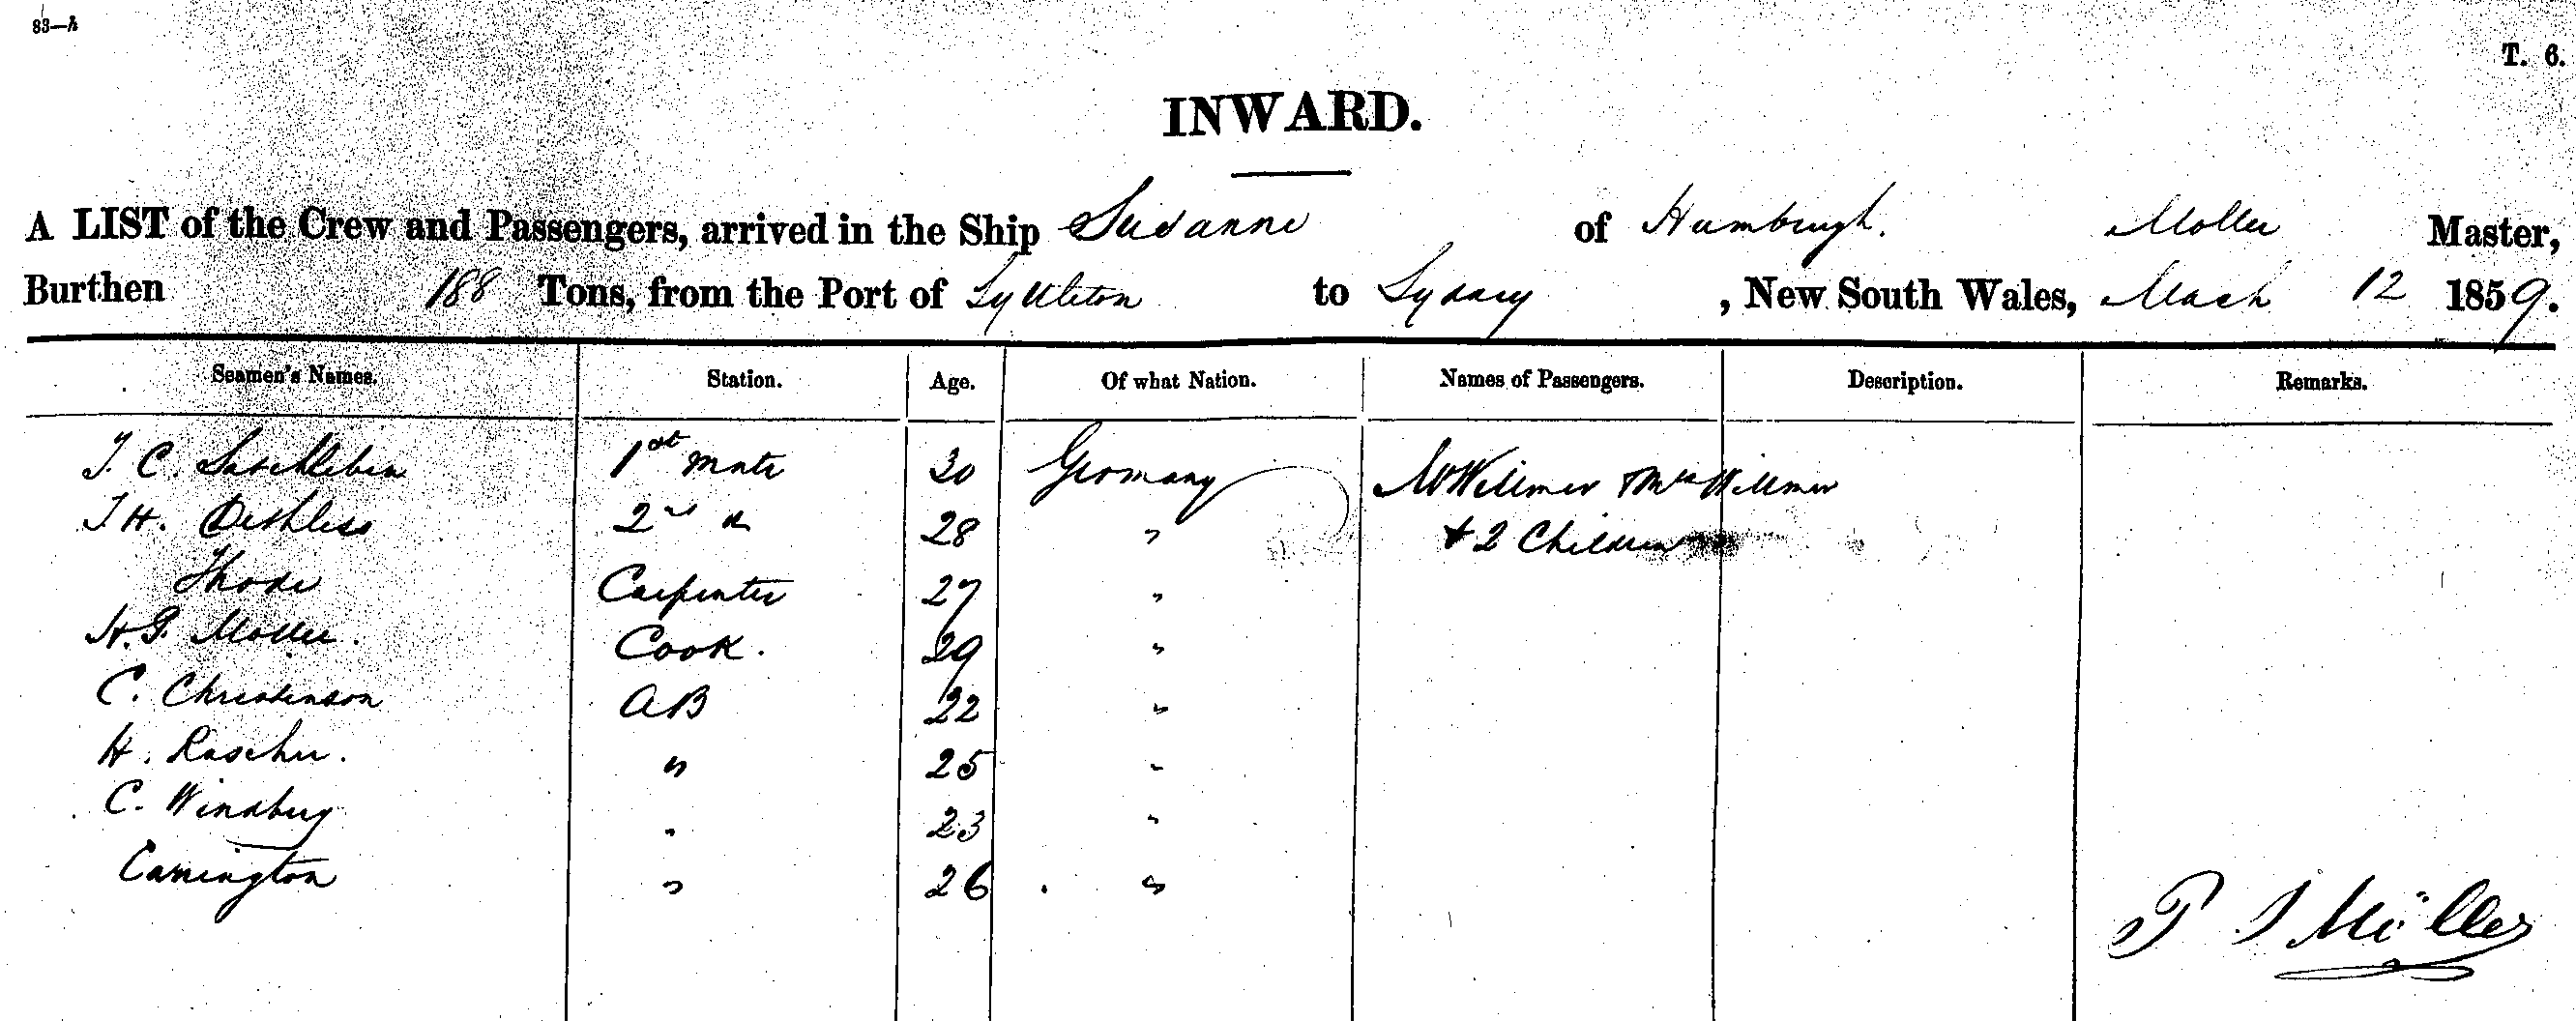 83—h
T. 6.
INWARD.
A LIST of the Crew and Passengers, arrived in the Ship Susanne of Hamburgh. Moller Master,
Burthen 188 Tons, from the Port of Lyttleton to Sydney, New South Wales, March 12 1859.
Seamen's Names. Station. Age. Of what Nation. Names of Passengers. Description. Remarks.
J. C. 1st Mate 30 Germany Mr Willmer & Mrs Willmer
J H. Dethless 2nd " 28 " & 2 Children
Thode Carpenter 27 "
H. G. Moller. Cook. 29 "
C. Christenson AB 22 "
H. Rascher. " 25 "
C. Windberg " 23 "
Carrington " 26 "
P J Müller